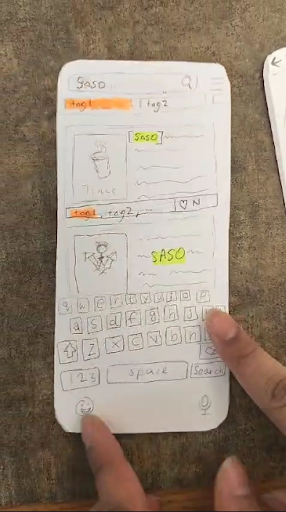 Saso
tag1 tag2
SASO
Time
tag1, tag2, ...
♡ N
SASO
q w e r t y u i o p
a s d f g h j
z x c v b n
123 space Search